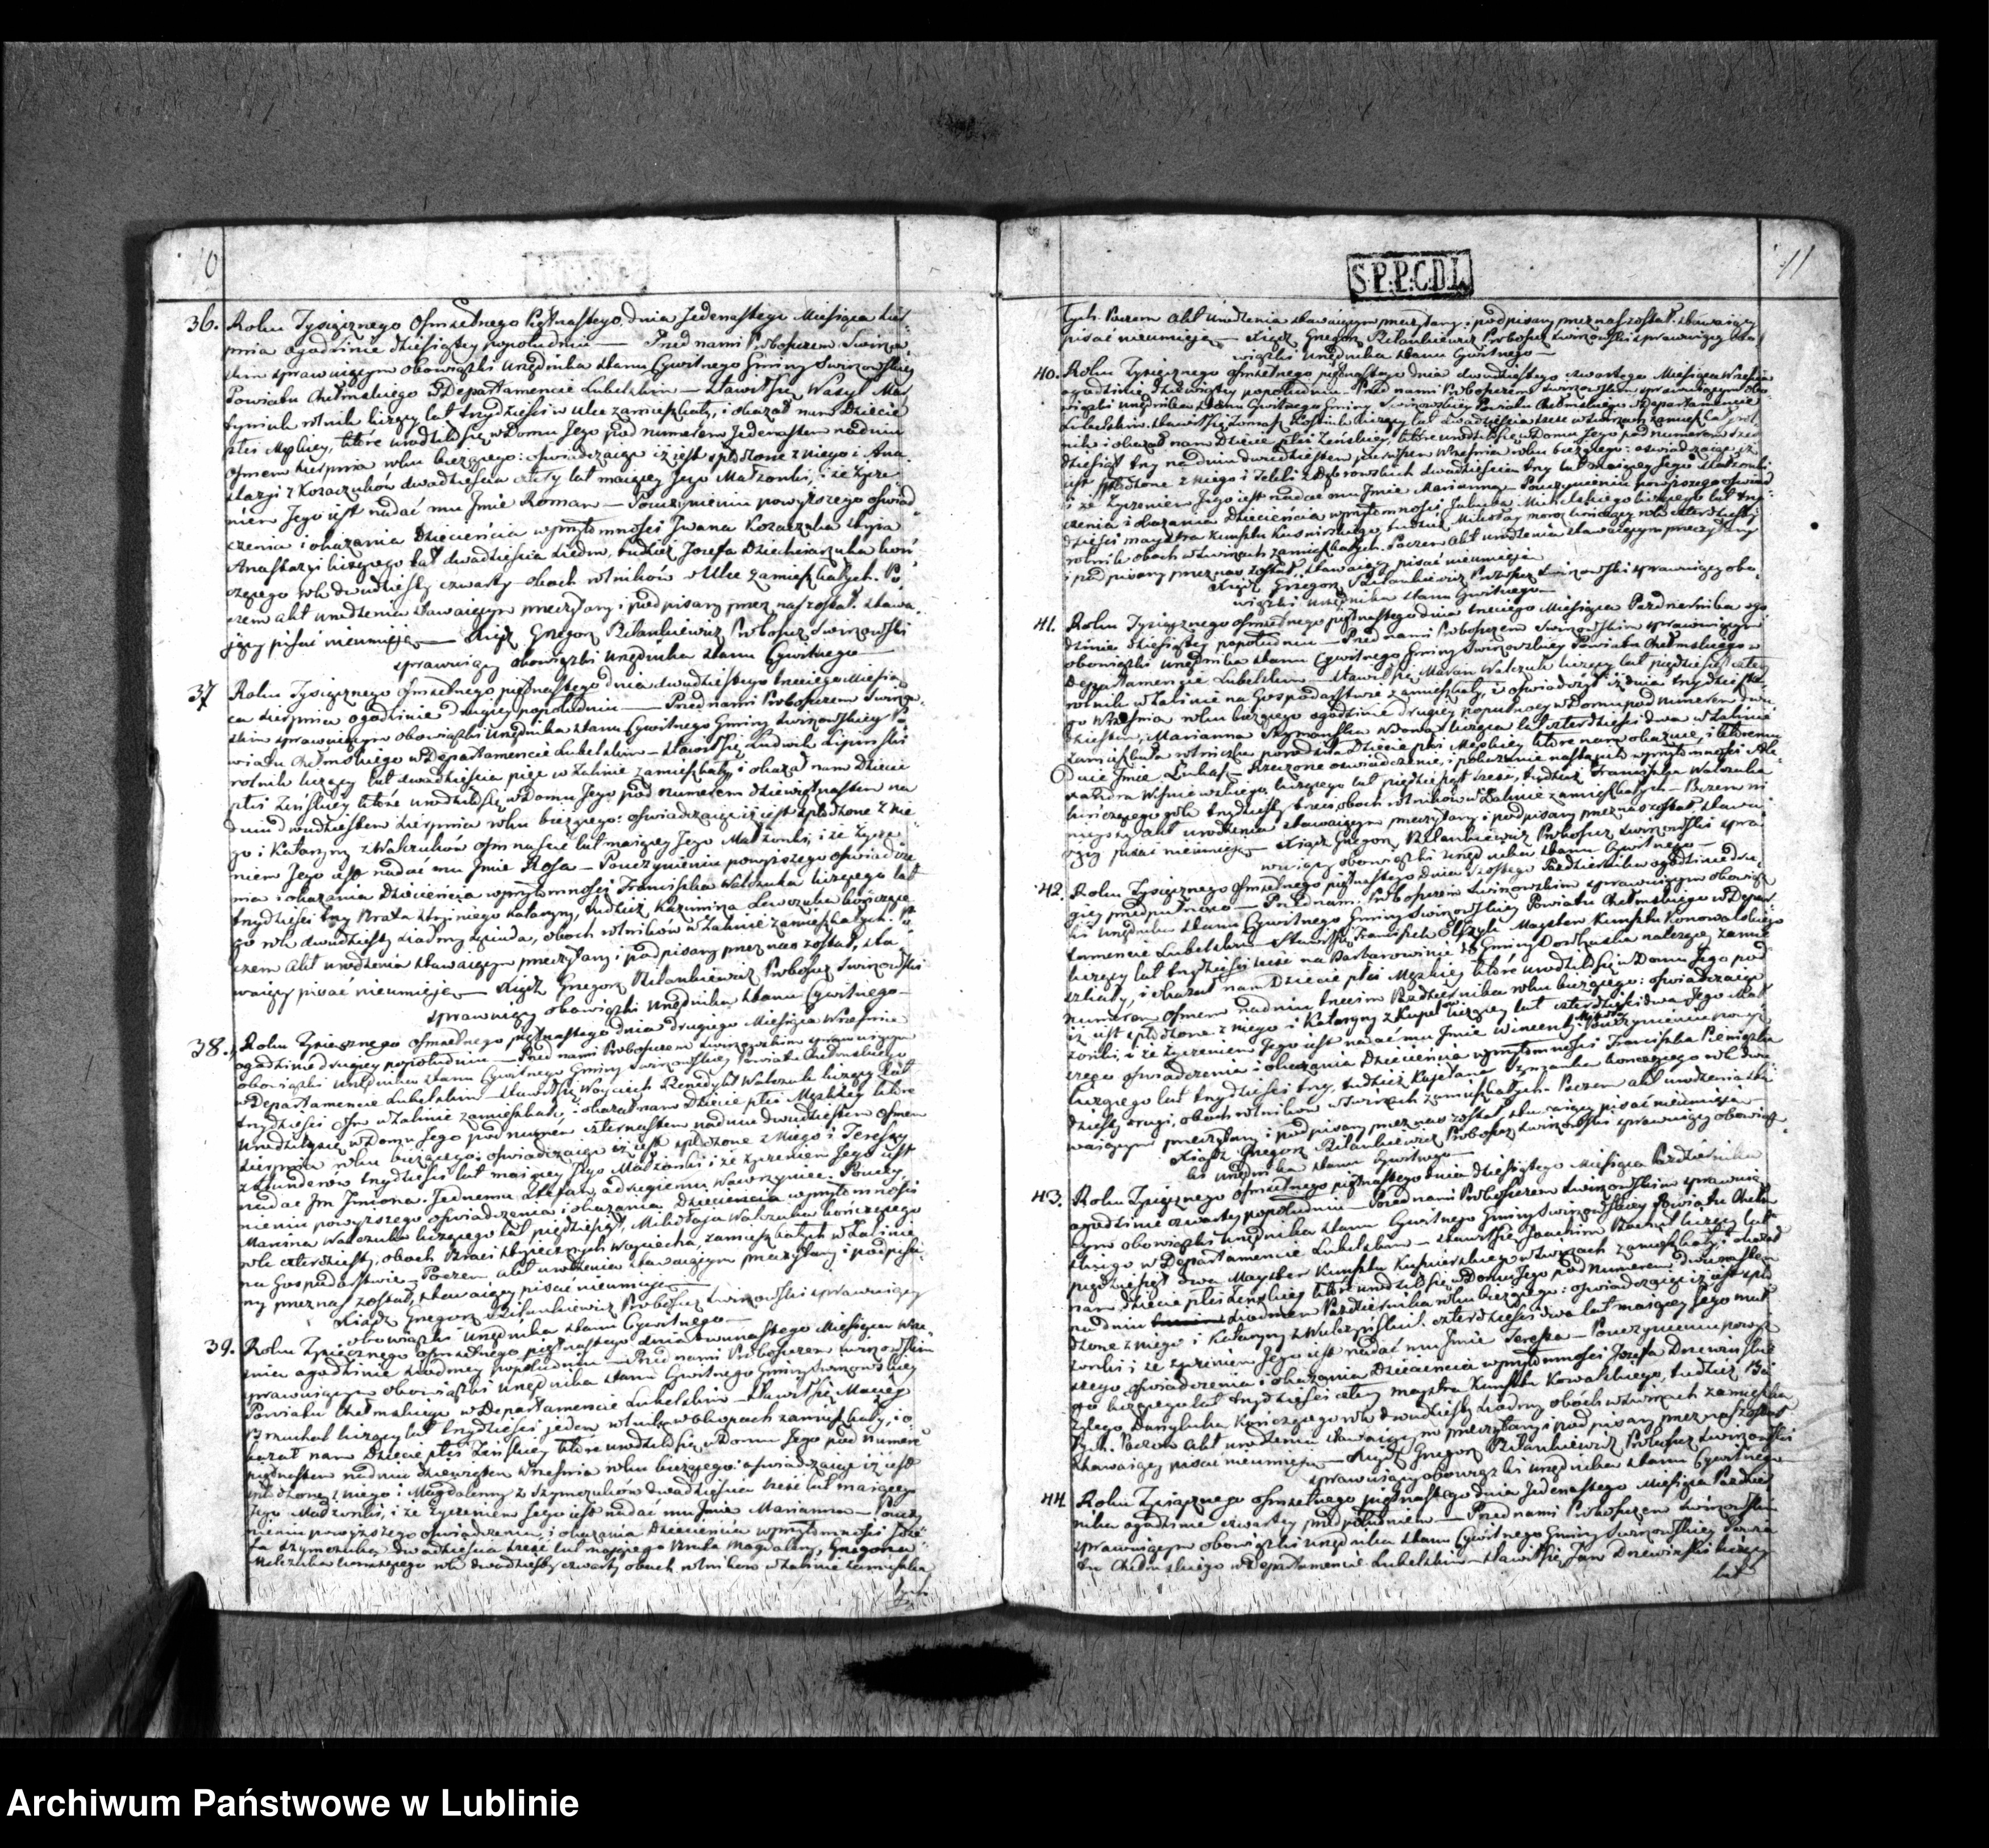 10
36. Roku Tysiącznego Ofmsetnego Piętnastego, dnia Jedenastego Miesiąca Sier-
pnia ogodzinie dziesiątey popołudniu — Przed nami Proboszczem Swirzow-
skim sprawuiącym obowiązki Urzędnika stanu Cywilnego Gminy Swirzowskiey
Powiatu Chełmskiego w Departamencie Lubelskim — stawił się Wasyl
rolnik liczący lat trzydzieści w Ulce zamieszkały, i okazał nam Dziecie
płci Męskiey, które urodziło się w Domu Jego pod numerem Jedenastem na dniu
Osmem sierpnia roku bieżącego: oświadczaiąc iż jest spłodzone z niego i Ana-
stazyi z Kozaczuków dwadzieścia cztery lat maiącey Jego Małżonki, i że życze-
niem Jego jest nadać mu Jmie Roman — Pouczynieniu powyższego oświad-
czenia i okazania Dziecięcia w przytomności Jwana Kozaczuka stryia
Anastazyi liczącego lat dwadzieścia siedm, tudzież Jozefa koń-
czącego rok dwudziesty czwarty obuch rolników w Ulce zamieszkałych. Po-
czem akt urodzenia stawaiącym przeczytany i podpisany przez nas został. stawa-
iący pisać nieumieją — Xiądz Gregorz Proboszcz Swirzowski
sprawuiący obowiązki Urzędnika stanu Cywilnego —
37 Roku Tysiącznego Ofmsetnego piętnastego dnia dwudziestego trzeciego Miesią-
ca sierpnia ogodzinie drugiey popołudniu — Przed nami Proboszczem Swirzow-
skim sprawuiącym obowiązki Urzędnika stanu Cywilnego Gminy Swirzowskiey Po-
wiatu Chełmskiego w Departamencie Lubelskim — stawił się Ludwik Lipinski
rolnik liczący lat dwadzieścia pięć w Zalinie zamieszkały, i okazał nam Dziecie
płci Żeńskiey które urodziło się w Domu Jego pod numerem dziewiętnastem na
dniu dwudziestem sierpnia roku bieżącego: oświadczaiąc iż jest spłodzone z nie-
go i Katarzyny z Walczuków osmnaście lat maiącey Jego Małżonki, i że życze-
niem Jego jest nadać mu Jmie Rosa — Pouczynieniu powyższego oświadcze-
nia i okazania Dziecięcia w przytomności Franciszka Walczuka liczącego lat
trzydzieści trzy Brata Katarzyny, tudzież Kazimirza kończące-
go rok dwudziesty siódmy sąsiada, obuch rolników w Zalinie zamieszkałych. Po-
czem akt urodzenia stawaiącym przeczytany i podpisany przez nas został, sta-
waiący pisać nieumieją — Xiądz Gregorz Proboszcz Swirzowski
sprawuiący obowiązki Urzędnika stanu Cywilnego —
38. Roku Tysiącznego ofmsetnego piętnastego dnia drugiego Miesiąca Września
ogodzinie drugiey popołudniu — Przed nami Proboszczem Swirzowskim sprawuiącym
obowiązki Urzędnika stanu Cywilnego Gminy Swirzowskiey Powiatu Chełmskiego
w Departamencie Lubelskim — stawił się Woyciech Benedykt Walczuk liczący lat
trzydzieści Osm w Zalinie zamieszkały, i okazał nam Dziecie płci Męskiey które
urodziło się w Domu Jego pod numerem czternastem na dniu dwudziestem osmem
sierpnia roku bieżącego; oświadczaiąc iż jest spłodzone z Niego i Teressy
trzydzieści lat maiącey Jego Małżonki i że życzeniem Jego jest
nadać Jm Jmiona. Jednemu Stefan, a drugiemu Wawrzyniec. Pouczy-
nieniu powyższego oświadczenia i okazania Dziecięcia w przytomności
Marcina Walczuka liczącego lat pięćdziesiąt, Mikołaja Walczuka kończącego
rok czterdziesty, obuch Braci Woyciecha, zamieszkałych w Zalinie
na Gospodarstwie — Poczem akt urodzenia stawaiącym przeczytany i podpisa-
ny przez nas został, stawaiący pisać nieumieją —
Xiądz Gregorz Proboszcz Swirzowski sprawuiący
obowiązki Urzędnika stanu Cywilnego —
39. Roku Tysiącznego ofmsetnego piętnastego dnia Miesiąca Wrze-
śnia ogodzinie siódmey popołudniu — Przed nami Proboszczem Swirzowskim
sprawuiącym obowiązki Urzędnika stanu Cywilnego Gminy Swirzowskiey
Powiatu Chełmskiego w Departamencie Lubelskim — stawił się Maciej
liczący lat trzydzieści jeden rolnik w Okopach zamieszkały, i o-
kazał nam Dziecie płci Żeńskiey które urodziło się w Domu Jego pod numerem
piętnastem na dniu dziewiątem Września roku bieżącego: oświadczaiąc iż jest
spłodzone z niego i Magdaleny z Szymczuków dwadzieścia sześć lat maiącey
Jego Małżonki, i że życzeniem Jego jest nadać mu Jmie Marianna — Pouczy-
nieniu powyższego oświadczenia i okazania Dziecięcia w przytomności Joze-
fa Szymczuka, dwadzieścia sześć lat maiącego Magdaleny, Grzegorza
kończącego rok dwudziesty czwarty obuch rolników w Zalinie zamieszka-
łych
S.P.P.C.D.L.
11
łych. Poczem Akt Urodzenia stawaiącym przeczytany i podpisany przez nas został. stawaiący
pisać nieumieją — Xiądz Gregorz Proboszcz Swirzowski sprawuiący obo-
wiązki Urzędnika stanu Cywilnego —
40. Roku Tysiącznego ofmsetnego piętnastego dnia dwudziestego czwartego Miesiąca Września
ogodzinie dziewiątey popołudniu — Przed nami Proboszczem Swirzowskim sprawuiącym obo-
wiązki Urzędnika stanu Cywilnego Gminy Swirzowskiey Powiatu Chełmskiego w Departamencie
Lubelskim stawił się Tomasz liczący lat dwadzieścia w Swirzach zamieszkały rol-
nik i okazał nam Dziecie płci Żeńskiey, które urodziło się w Domu Jego pod numerem
dziesiąt trzy na dniu dwudziestem Września roku bieżącego: oświadczaiąc iż
jest spłodzone z niego i Tekli z Dąbrowskich dwadzieścia trzy lat maiącey Jego Małżonki
i że życzeniem Jego jest nadać mu Jmie Marianna — Pouczynieniu powyższego oświad-
czenia i okazania Dziecięcia w przytomności Jakuba liczącego lat trzy-
dzieści maystra kunsztu Kusnirskiego, tudzież Mikołaj kończący rok czterdziesty
rolnik obuch w Swirzach zamieszkałych. Poczem Akt urodzenia stawaiącym przeczytany
i podpisany przez nas został, stawaiący pisać nieumieją
Xiądz Gregorz Proboszcz Swirzowski sprawuiący obo-
wiązki Urzędnika stanu Cywilnego —
41. Roku Tysiącznego ofmsetnego piętnastego dnia trzeciego Miesiąca Pazdziernika ogo-
dzinie dziesiątey popołudniu — Przed nami Proboszczem Swirzowskim sprawuiącym
obowiązki Urzędnika stanu Cywilnego Gminy Swirzowskiey Powiatu Chełmskiego w
Departamencie Lubelskim — stawił się Walczuk liczący lat pięćdziesiąt
rolnik w Zalinie na Gospodarstwie zamieszkały, i oświadczył iż dnia trzydzieste-
go Września roku bieżącego ogodzinie drugiey popułnocy w Domu pod numerem dwu-
dziestem, Marianna Szymanska Wdowa licząca lat czterdzieści dwa w Zalinie
zamieszkała porodziła Dziecie płci Męskiey które nam okazuie, i któremu
daie Jmie Łukasz — Rzeczone oświadczenie i pokazanie nastąpiło w przytomności Ale-
xandra Wiśniewskiego liczącego lat pięćdziesiąt sześć, tudzież Franciszka Walczuka
kończącego rok trzydziesty trzeci obuch rolników w Zalinie zamieszkałych — Poczem ni-
nieyszy Akt urodzenia stawaiącym przeczytany i podpisany przez nas został. stawa-
iący pisać nieumieją — Xiądz Gregorz Proboszcz Swirzowski spra-
wuiący obowiązki Urzędnika stanu Cywilnego —
42. Roku Tysiącznego Ofmsetnego piętnastego dnia szostego Pazdziernika ogodzinie dru-
giey przedpułnocą — Przed nami Proboszczem Swirzowskim sprawuiącym obowiąz-
ki Urzędnika stanu Cywilnego Gminy Swirzowskiey Powiatu Chełmskiego w Depar-
tamencie Lubelskim — stawił się Franciszek Mayster Kunsztu Konowalskiego
liczący lat trzydzieści sześć na Barbarowinie do Gminy należącey zamie-
szkały, i okazał nam Dziecie płci Męskiey które urodziło się w Domu Jego pod
numerem Osmem na dniu trzecim Pazdziernika roku bieżącego: oświadczaiąc
iż jest spłodzone z niego i Katarzyny z liczącey lat czterdzieści dwa Jego Mał-
żonki, i że życzeniem Jego jest nadać mu Jmie Wincenty Pouczynieniu powyż-
szego oświadczenia i okazania Dziecięcia w przytomności Franciszka
liczącego lat trzydzieści trzy, tudzież Kajetana kończącego rok dwu-
dziesty drugi, obuch rolników w Swirzach zamieszkałych. Poczem akt urodzenia sta-
waiącym przeczytany i podpisany przez nas został stawaiący pisać nieumieją
Xiądz Gregorz Proboszcz Swirzowski sprawuiący obowiąz-
ki Urzędnika stanu Cywilnego —
43. Roku Tysiącznego Ofmsetnego piętnastego dnia dziesiątego Miesiąca Pazdziernika
ogodzinie czwartey popołudniu — Przed nami Proboszczem Swirzowskim sprawuią-
cym obowiązki Urzędnika stanu Cywilnego Gminy Swirzowskiey Powiatu Chełm-
skiego w Departamencie Lubelskim — stawił się Joachim liczący lat
pięćdziesiąt dwa Mayster Kunsztu Kusnierskiego w Swirzach zamieszkały, i okazał
nam dziecie płci Żenskiey które urodziło się w Domu Jego pod Numerem dwunastem
na dniu siodmem Pazdziernika roku bieżącego: oświadczaiąc iż jest spło-
dzone z niego i Katarzyny z czterdzieści dwa lat maiącey Jego Mał-
żonki i że życzeniem Jego jest nadać mu Jmie Teressa — Pouczynieniu powyż-
szego oświadczenia i okazania Dziecięcia w przytomności Jozefa
go liczącego lat trzydzieści maystra Kunsztu Kowalskiego, tudzież Ba-
zylego Danyluka kończącego rok dwudziesty siodmy obuch w Swirzach zamieszka-
łych. Poczem Akt urodzenia stawaiącym przeczytany i podpisany przez nas został
stawaiący pisać nieumieją — Xiądz Gregorz Proboszcz Swirzowski
sprawuiący obowiązki Urzędnika stanu Cywilnego —
44 Roku Tysiącznego ofmsetnego piętnastego dnia Jedenastego Miesiąca Pazdzier-
nika ogodzinie czwartey przedpołudniem — Przed nami Proboszczem Swirzowskim
sprawuiącym obowiązki Urzędnika stanu Cywilnego Gminy Swirzowskiey Powia-
tu Chełmskiego w Departamencie Lubelskim — stawił się Jan Drewinski liczący
lat
Archiwum Państwowe w Lublinie